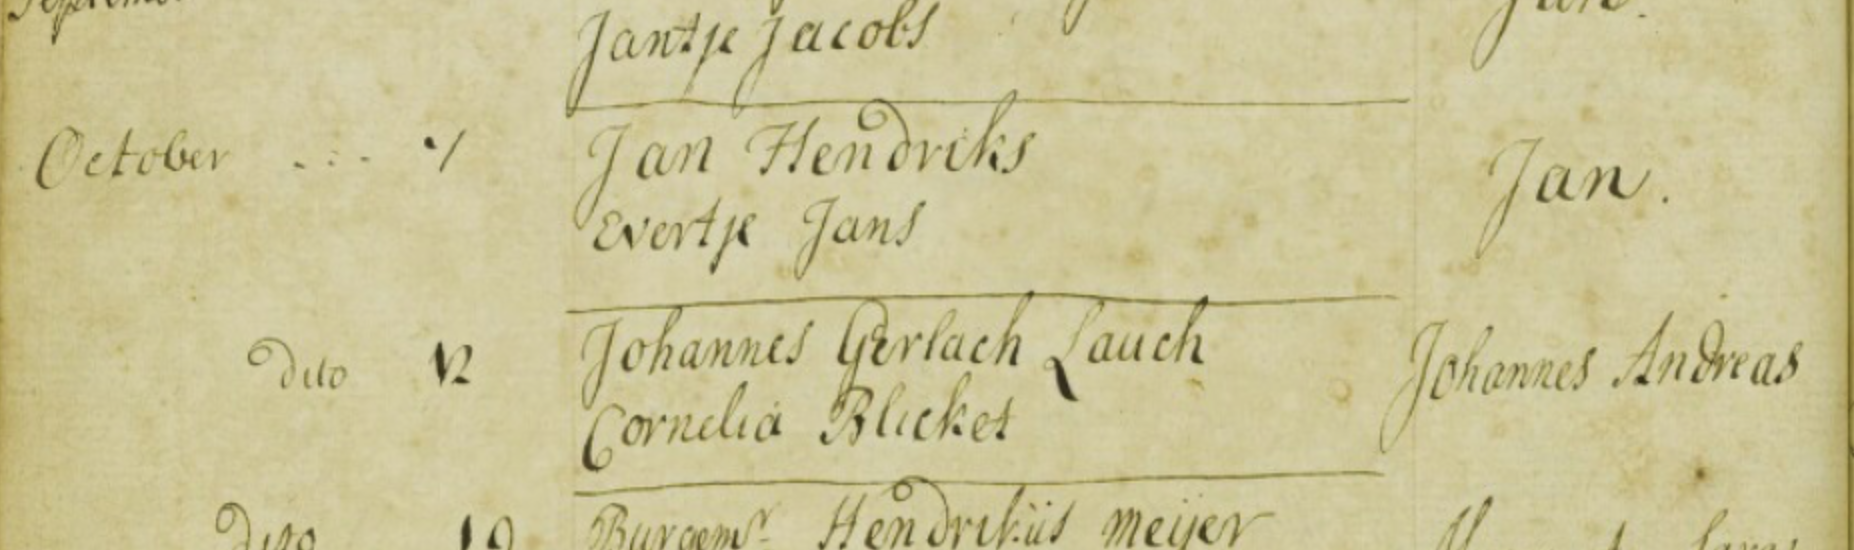 Jantje Jacobs
October 1 Jan Hendriks Jan.
Evertje Jans
dito 12 Johannes Gerlach Lauch Johannes Andreas
Cornelia Blicket
dito 19 Burgemr. Hendrikus meijer